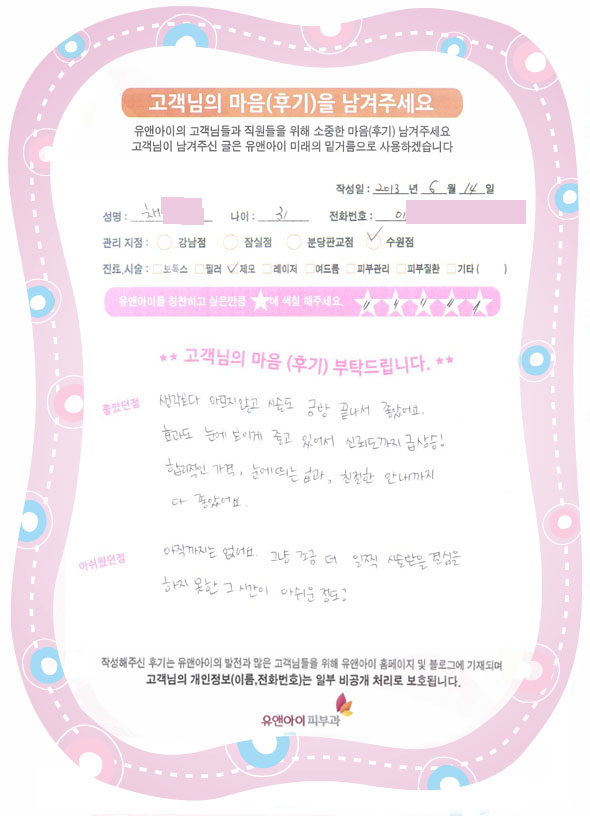 고객님의 마음(후기)을 남겨주세요
유앤아이의 고객님들과 직원들을 위해 소중한 마음(후기) 남겨주세요
고객님이 남겨주신 글은 유앤아이 미래의 밑거름으로 사용하겠습니다
작성일 : 2013 년 6 월 14 일
성명 : 채 나이 : 31 전화번호 : 01
관리 지점 : 강남점 잠실점 분당판교점 수원점
진료,시술 : 보톡스 필러 제모 레이저 여드름 피부관리 피부질환 기타 ( )
유앤아이를 칭찬하고 싶은만큼 ★에 색칠 해주세요.
** 고객님의 마음 (후기) 부탁드립니다. **
좋았던점 생각보다 아프지않고 시술도 금방 끝나서 좋았어요.
효과도 눈에 보이게 줄고 있어서 신뢰도까지 급상승!
합리적인 가격, 눈에띄는 효과, 친절한 안내까지
다 좋았어요.
아쉬웠던점 아직까지는 없어요. 그냥 조금 더 일찍 시술받을 결심을
하지 못한 그 시간이 아쉬운 정도?
작성해주신 후기는 유앤아이의 발전과 많은 고객님들을 위해 유앤아이 홈페이지 및 블로그에 기재되며
고객님의 개인정보(이름,전화번호)는 일부 비공개 처리로 보호됩니다.
유앤아이피부과